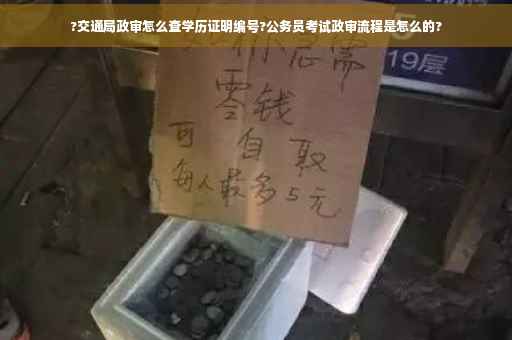 ?交通局政审怎么查学历证明编号?公务员考试政审流程是怎么的?
5
19层
你急需
零钱
可自取
每人最多5元